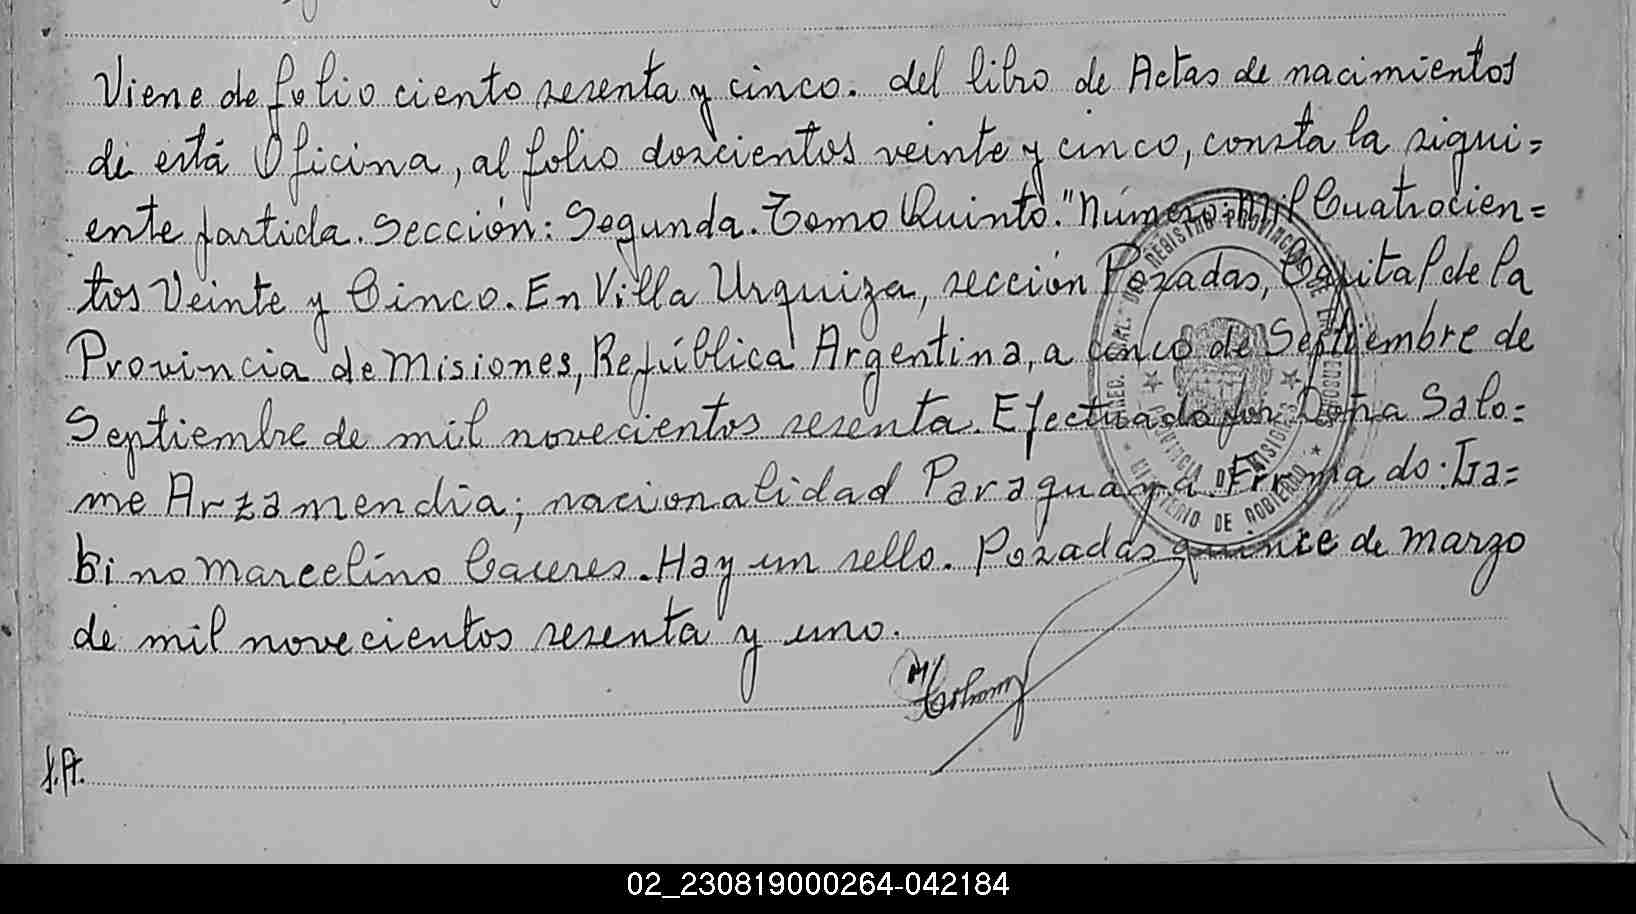 Viene de folio ciento sesenta y cinco. del libro de Actas de nacimientos
de está Oficina, al folio doscientos veinte y cinco, consta la sigui=
ente partida. Sección: Segunda. Tomo Quinto. "Número: Mil Cuatrocien=
tos Veinte y Cinco. En Villa Urquiza, sección Posadas, Capital de la
Provincia de Misiones, República Argentina, a cinco de Septiembre de
Septiembre de mil novecientos sesenta. Efectuado por Doña Salo=
me Arzamendia; nacionalidad Paraguaya. Firmado:
bino Marcelino Caceres. Hay un sello. Posadas quince de marzo
de mil novecientos sesenta y uno.
REGISTRO PROVINCIAL DE LAS PERSONAS
PROVINCIA DE MISIONES
MINISTERIO DE GOBIERNO
02_230819000264-042184